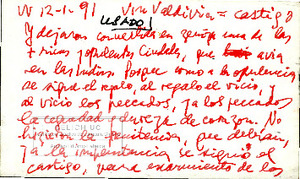 V 12-1-91 Viu Valdivia = castigo
USADO
Y dejaron convertida en ceniza una de las
+ ricas y opulentas Ciudades, que avia
en las Indias. Porque como a la opulencia
se sigue el regalo, al regalo el vicio, y
al vicio los peccados, y a los peccados
la ceguedad y dureza de corazon. No
hicieron la penitencia, que debian,
y a la impenitencia se siguió el
castigo, para escarmiento de los